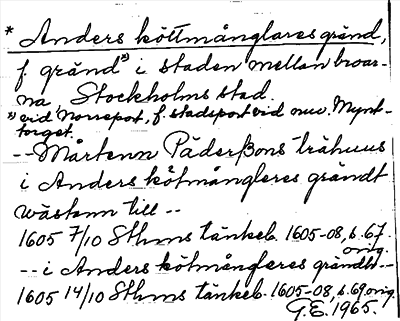 * Anders köttmånglares gränd,
f. gränd*) i staden mellan broar-
na Stockholms stad.
*) vid Norreport, f. stadsport vid nuv. Mynt-
torget.
-- Mårtenn Päderßons trähuus
i Anders kötmångleres grändt
wästenn till --
1605 7/10 Sthms tänkeb. 1605-08, s. 67.
orig.
-- i Anders kötmångleres grändt --
1605 14/10 Sthms tänkeb. 1605-08, s. 69, orig.
G.E. 1965.